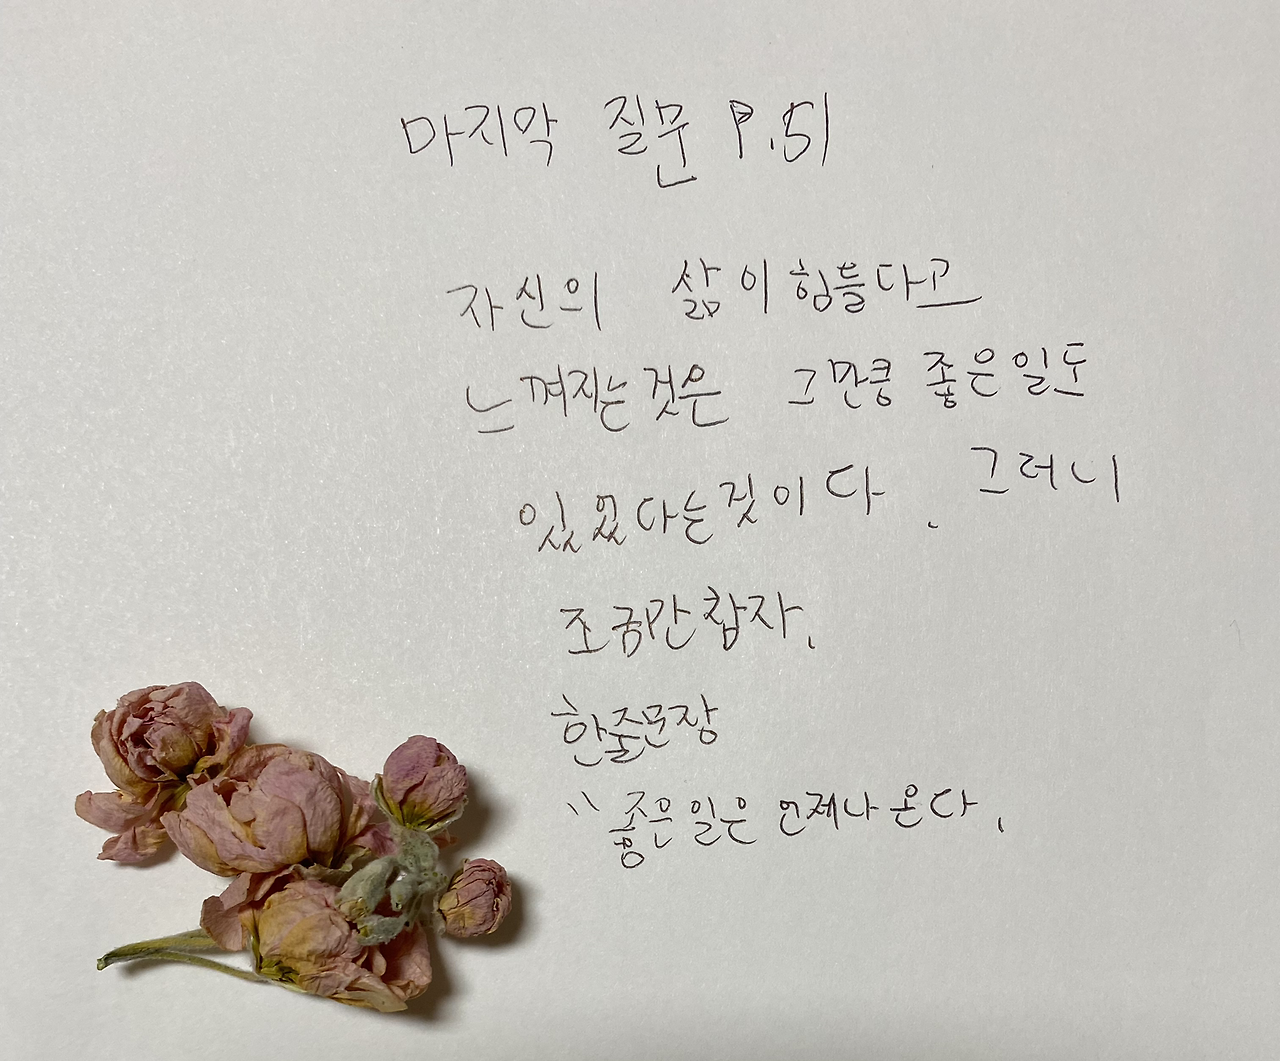 마지막 질문 P.51
자신의 삶이 힘들다고
느껴지는것은 그만큼 좋은일도
있었다는것이다. 그러니
조금만 참자.
한줄문장
" 좋은 일은 언제나 온다.